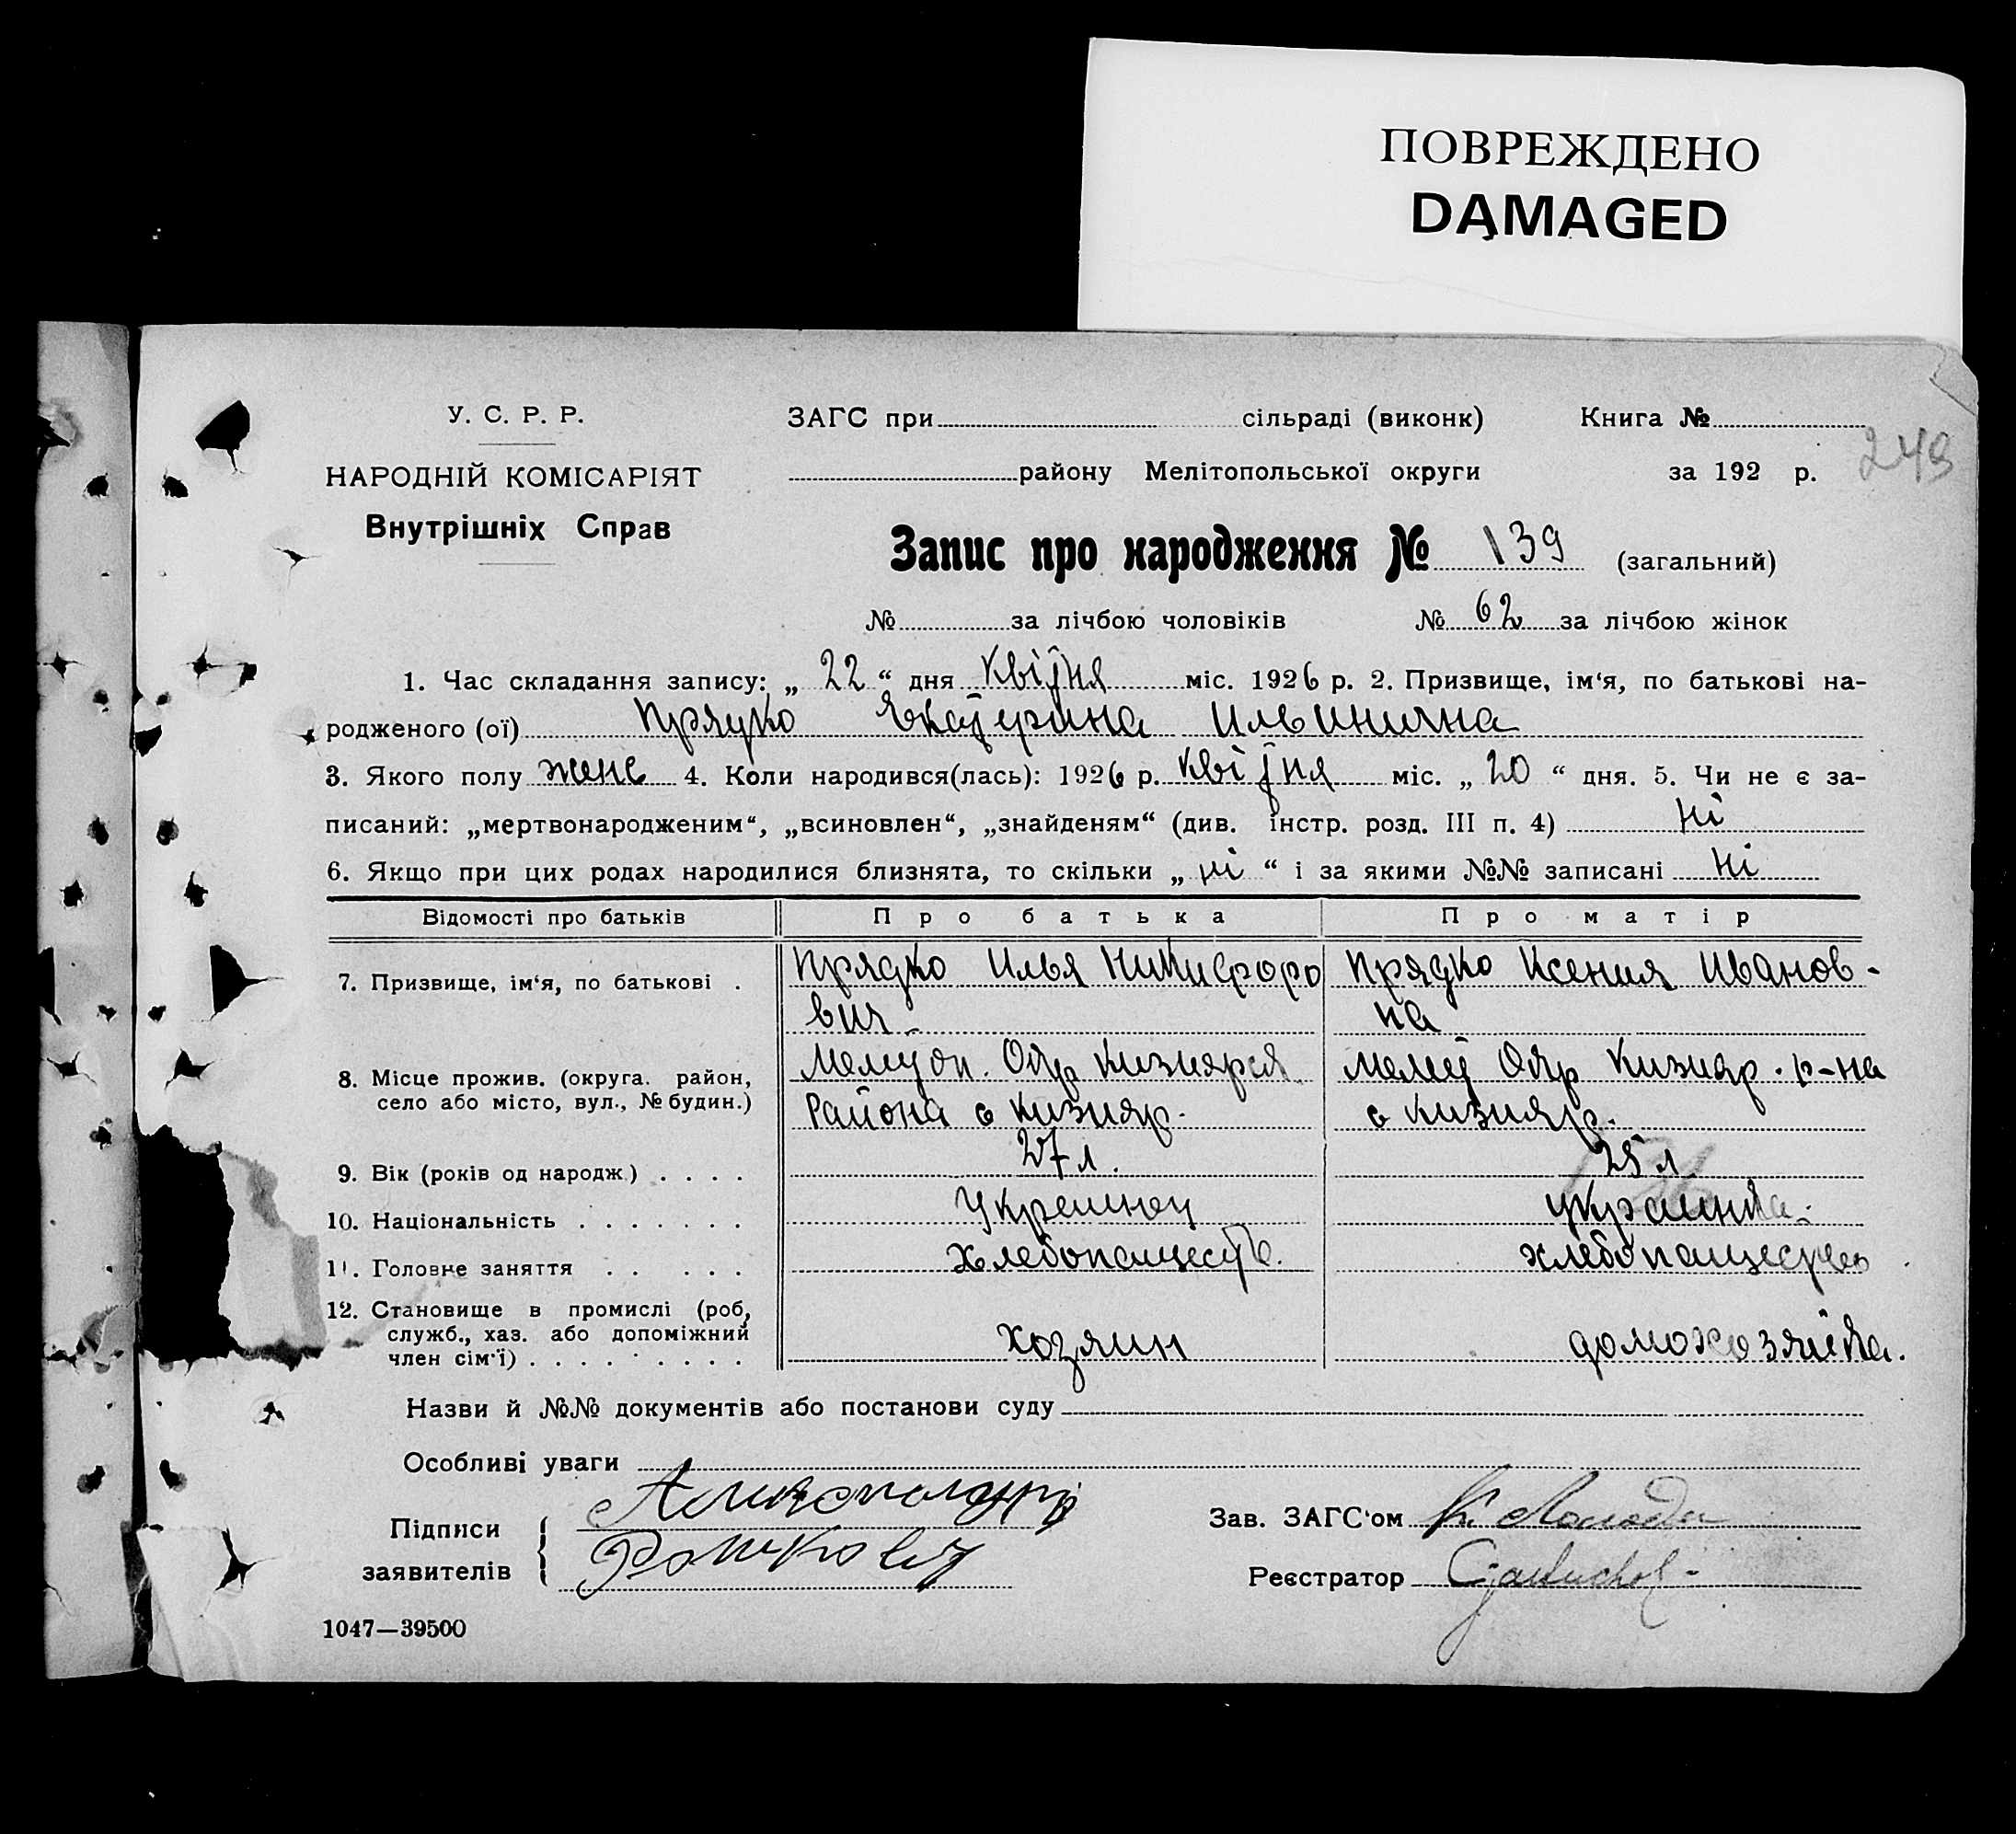 ПОВРЕЖДЕНО
DAMAGED
У. С. Р. Р.
НАРОДНІЙ КОМІСАРІЯТ
Внутрішніх Справ
ЗАГС при сільраді (виконк) Книга №
району Мелітопольської округи за 192 р. 248
Запис про народження № 139 (загальний)
№ за лічбою чоловіків № 62 за лічбою жінок
1. Час складання запису: „ 22 “ дня квітня міс. 1926 р. 2. Призвище, ім‘я, по батькові на-
родженого (ої) Прядко Екатерина Ильинична
3. Якого полу жене 4. Коли народився(лась): 1926 р. квітня міс. „ 20 “ дня. 5. Чи не є за-
писаний: „мертвонародженим“, „всиновлен“, „знайденям“ (див. інстр. розд. III п. 4) ні
6. Якщо при цих родах народилися близнята, то скільки „ ні “ і за якими №№ записані ні
Відомості про батьків Про батька Про матір
7. Призвище, ім‘я, по батькові . Прядко Илья Никифоро Прядко Ксения Иванов-
вич на
8. Місце прожив. (округа. район, Мелитоп. Окр Кизиярск. Мелит Окр Кизияр. р-на
село або місто, вул., № будин.) Района с Кизияр. с Кизияр.
9. Вік (років од народж.) . . . . 27 л. 25 л
10. Національність . . . . . . . Украинец украинка.
11. Головне заняття . . . . . Хлебопашеств. хлебопашество
12. Становище в промислі (роб,
служб., хаз. або допоміжний хозяин домохозяйка.
член сім‘ї) . . . . . . . . .
Назви й №№ документів або постанови суду
Особливі уваги
Підписи
заявителів
Зав. ЗАГС‘ом
Реєстратор
1047—39500